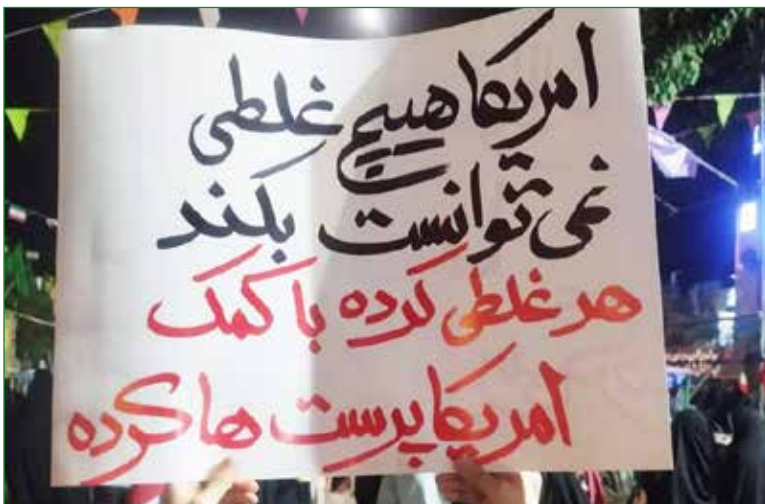 امریکا هیچ غلطی
نمی توانست بکند
هر غلطی کرده با کمک
امریکا پرست ها کرده